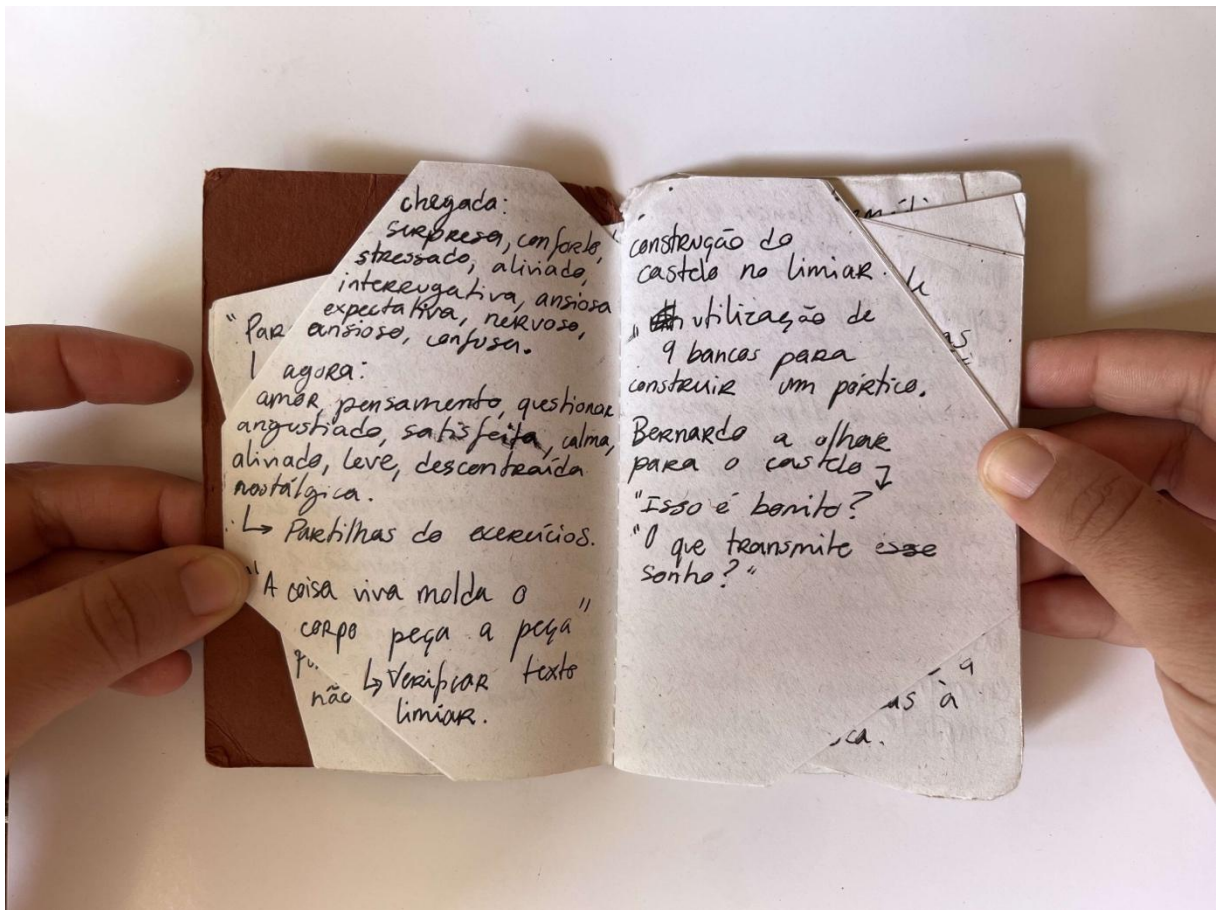 chegada:
surpresa, conforto,
stressado, aliviado,
interrugativa, ansiosa
expectativa, nervoso,
ansioso, confusa.
"Par
agora:
amor, pensamento, questionar
angustiado, satisfeita, calma,
aliviado, leve, descontraída
nostálgica.
↳ Partilhas do exercícios.
"A coisa viva molda o
corpo peça a peça"
↳ Verificar texto
não
limiar.
construção do
castelo no limiar.
" utilização de
9 bancos para
construir um pórtico.
Bernardo a olhar
para o castelo ↴
"Isso é bonito?
"O que transmite esse
sonho?"
as
9
as à
ca.